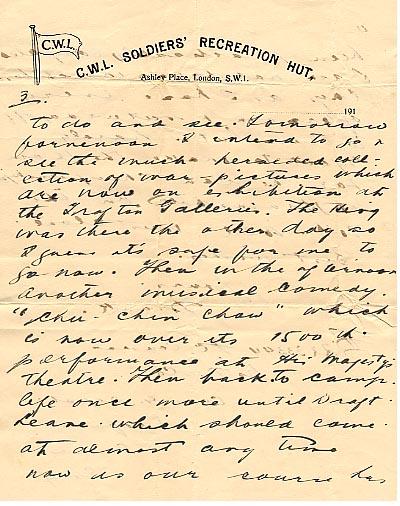 C.W.L.
C.W.L. SOLDIERS' RECREATION HUT,
Ashley Place, London, S.W.1.
3.
191
to do and see. Tomorrow
forenoon I intend to go &
see the much heralded coll-
ection of war pictures which
are now on exhibition at
the Grafton Galleries. The King
was there the other day so
I guess it's safe for me to
go now. Then in the afternoon
another musical comedy.
"Chu-Chin Chow" which
is now over its 1500 th.
performance at His Majesty's
Theatre. Then back to camp
life once more until Draft
Leave. which should come
at almost any time
now as our course has